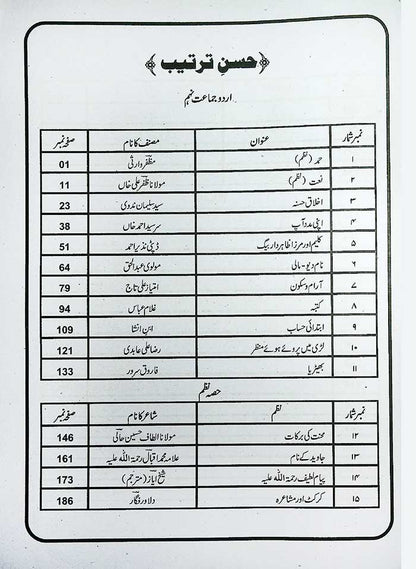 ﴿حسنِ ترتیب﴾
اردو جماعت نہم
نمبر شمار عنوان مصنف کا نام صفحہ نمبر
۱ حمد (نظم) مظفر وارثی 01
۲ نعت (نظم) مولانا ظفر علی خاں 11
۳ اخلاق حسنہ سید سلیمان ندوی 23
۴ اپنی مدد آپ سر سید احمد خاں 38
۵ کلیم اور مرزا ظاہر دار بیگ ڈپٹی نذیر احمد 51
۶ نام دیو۔مالی مولوی عبدالحق 64
۷ آرام و سکون امتیاز علی تاج 79
۸ کتبہ غلام عباس 94
۹ ابتدائی حساب ابن انشا 109
۱۰ لڑی میں پروئے ہوئے منظر رضا علی عابدی 121
۱۱ بھیڑیا فاروق سرور 133
حصہ نظم
نمبر شمار نظم شاعر کا نام صفحہ نمبر
۱۲ محنت کی برکات مولانا الطاف حسین حالی 146
۱۳ جاوید کے نام علامہ محمد اقبال رحمۃ اللہ علیہ 161
۱۴ پیام لطیف رحمۃ اللہ علیہ شیخ ایاز (مترجم) 173
۱۵ کرکٹ اور مشاعرہ دلاور فگار 186